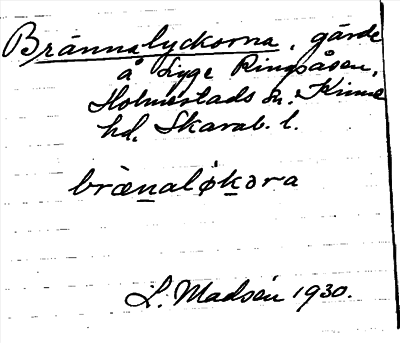 Brännalyckorna, gärde
å Ligge Ringsåsen,
Holmestads sn. Kinne
hd. Skarab. l.
brænaløkɔra
L. Madsén 1930.